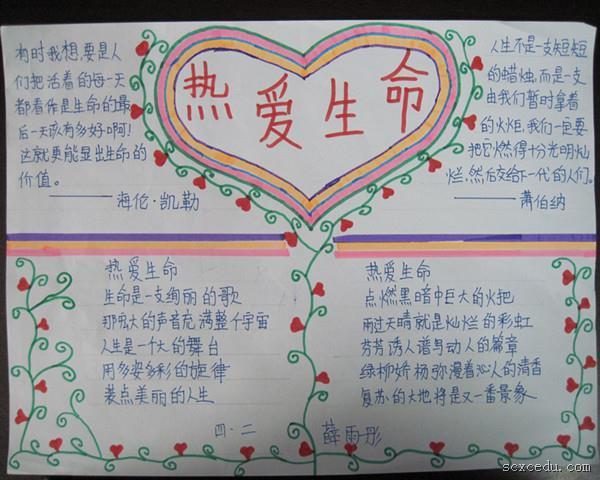 热爱生命
有时我想,要是人
们把活着的每一天
都看作是生命的最
后一天该有多好啊!
这就更能显出生命的
价值。
——海伦·凯勒
人生不是一支短短
的蜡烛,而是一支
由我们暂时拿着
的火炬,我们一定要
把它燃得十分光明灿
烂,然后交给下一代的人们。
——萧伯纳
热爱生命
生命是一支绚丽的歌
那宏大的声音充满整个宇宙
人生是一个大的舞台
用多姿多彩的旋律
装点美丽的人生
热爱生命
点燃黑暗中巨大的火把
雨过天晴就是灿烂的彩虹
芬芳诱人谱写动人的篇章
绿柳娇杨弥漫着沁人的清香
复苏的大地将是又一番景象
四·二 薛雨彤
scxcedu.com